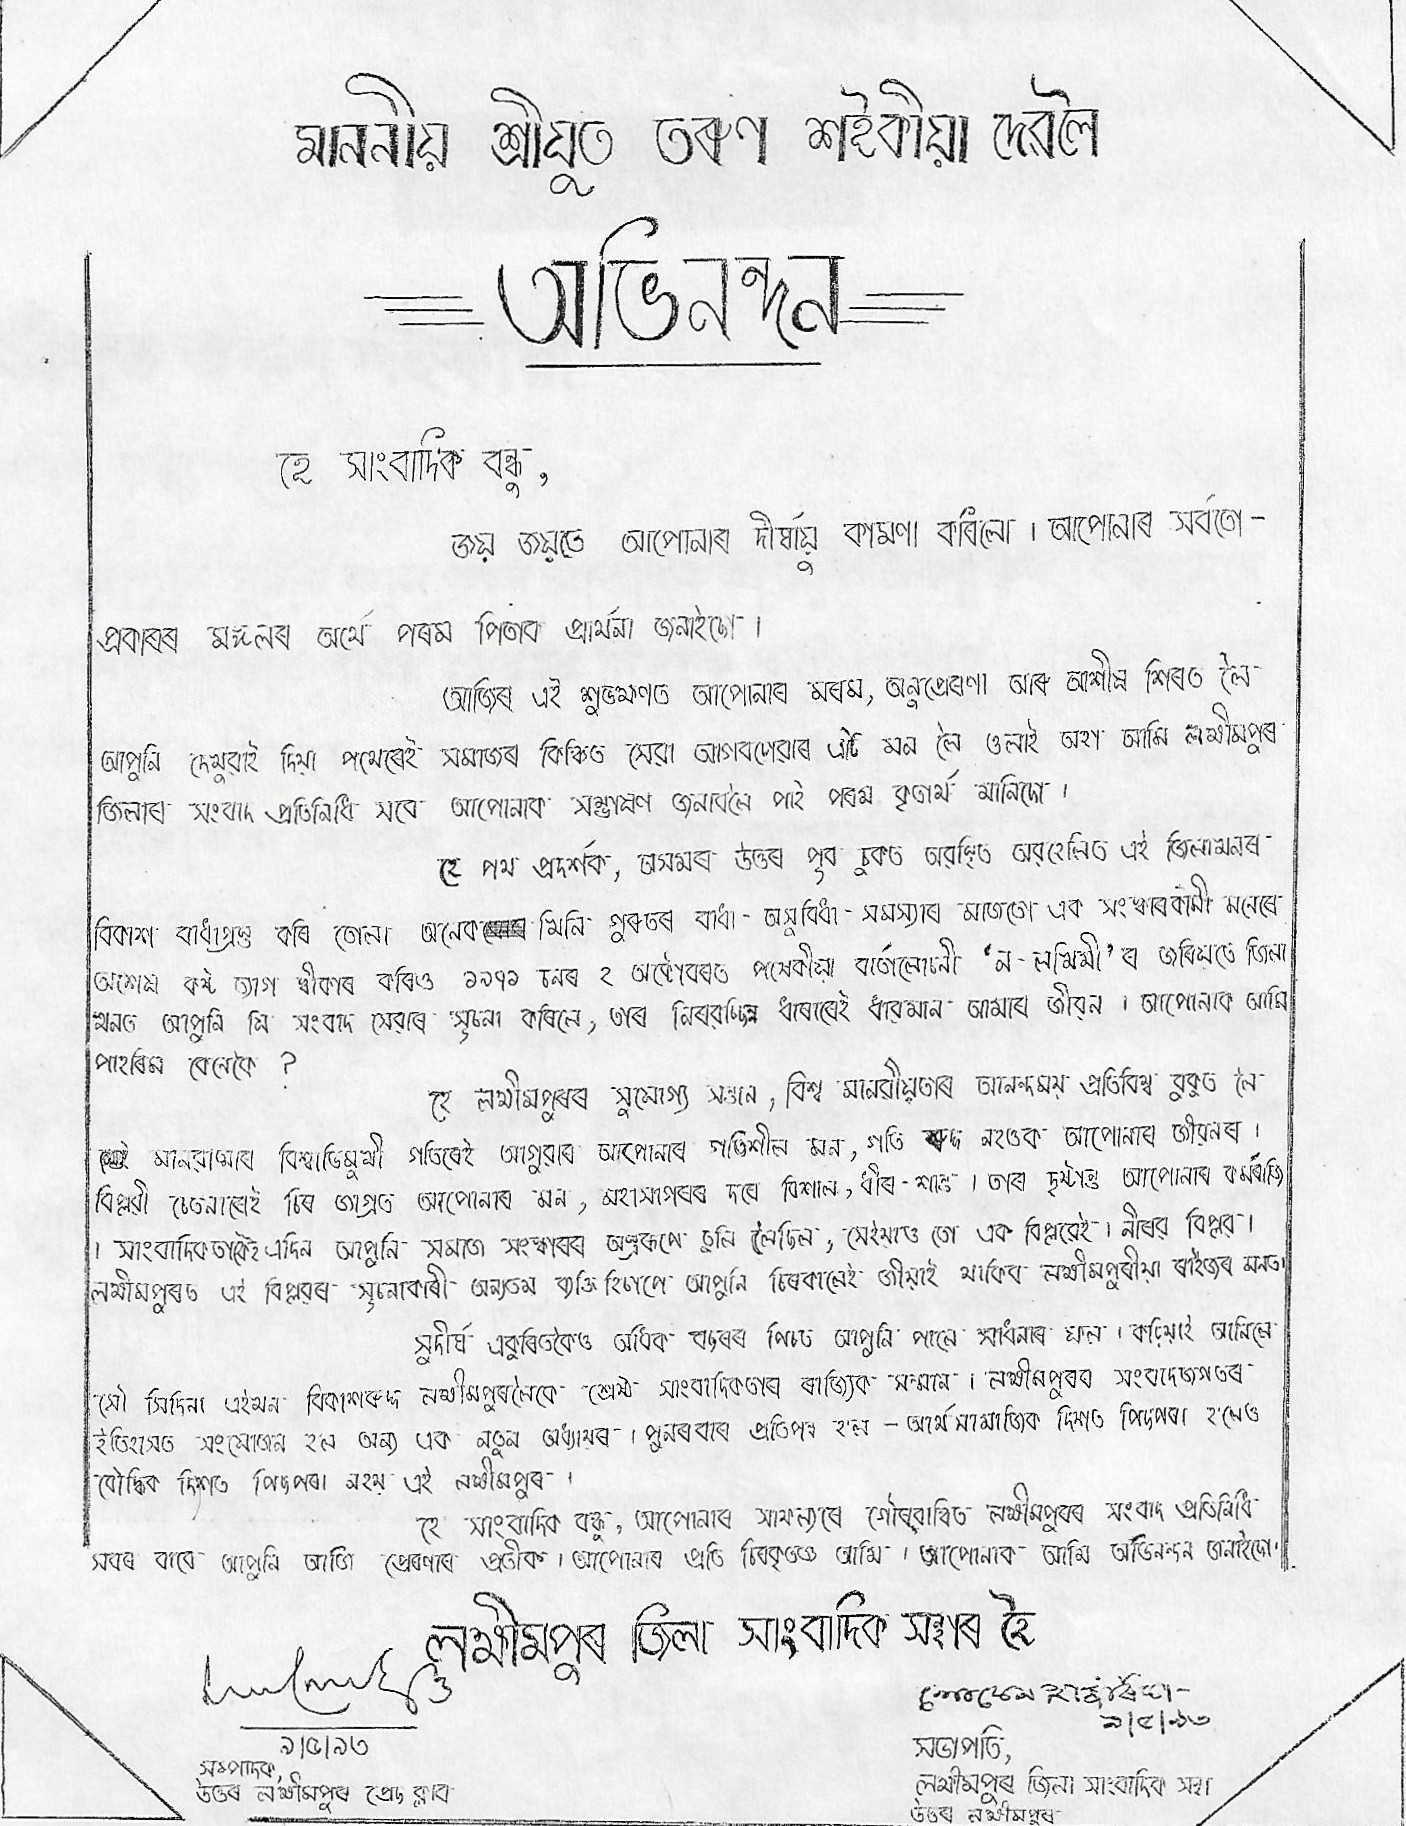 মাননীয় শ্ৰীযুত তৰুণ শইকীয়া দেৱলৈ
অভিনন্দন
হে সাংবাদিক বন্ধু,
জয় জয়তে আপোনাৰ দীৰ্ঘায়ু কামণা কৰিলো । আপোনাৰ সৰ্বতো-
প্ৰকাৰৰ মঙ্গলৰ অৰ্থে পৰম পিতাৰ প্ৰাৰ্থনা জনাইছো ।
আজিৰ এই শুভক্ষণত আপোনাৰ মৰম, অনুপ্ৰেৰণা আৰু আশীষ শিৰত লৈ
আপুনি দেখুৱাই দিয়া পথেৰেই সমাজৰ কিঞ্চিত সেৱা আগবঢ়োৱাৰ এটি মন লৈ ওলাই অহা আমি লক্ষীমপুৰ
জিলাৰ সংবাদ প্ৰতিনিধি সবে আপোনাক সম্ভাষণ জনাবলৈ পাই পৰম কৃতাৰ্থ মানিছো ।
হে পথ প্ৰদৰ্শক, অসমৰ উত্তৰ পূব চুকত অৱস্থিত অৱহেলিত এই জিলাখনৰ
বিকাশ বাধাগ্ৰস্ত কৰি তোলা অনেক মিনি গুৰুতৰ বাধা-অসুবিধা-সমস্যাৰ মাজতো এক সংস্কাৰকামী মনেৰে
অশেষ কষ্ট ত্যাগ স্বীকাৰ কৰিও ১৯৭১ চনৰ ২ অক্টোবৰত পষেকীয়া বাৰ্তালোচনী 'ন-লখিমী'ৰ জৰিয়তে জিলা
খনত আপুনি যি সংবাদ সেৱাৰ সূচনা কৰিলে, তাৰ নিৰৱচ্ছিন্ন ধাৰাৰেই ধাৱমান আমাৰ জীৱন । আপোনাক আমি
পাহৰিম কেনেকৈ ?
হে লক্ষীমপুৰৰ সুযোগ্য সন্তান, বিশ্ব মানৱীয়তাৰ আনন্দময় প্ৰতিবিম্ব বুকুত লৈ
মানৱাত্মাৰ বিশ্বাভিমুখী গতিৰেই আগুৱাৰ আপোনাৰ গতিশীল মন, গতি ৰুদ্ধ নহওক আপোনাৰ জীৱনৰ ।
বিপ্লৱী চেতনাৰেই চিৰ জাগ্ৰত আপোনাৰ মন, মহাসাগৰৰ দৰে বিশাল, ধীৰ-শান্ত । তাৰ দৃষ্টান্ত আপোনাৰ কৰ্মৰাজি
। সাংবাদিকতাকেই এদিন আপুনি সমাজ সংস্কাৰৰ অস্ত্ৰৰূপে তুলি লৈছিল, সেইয়াও তো এক বিপ্লৱেই । নীৰৱ বিপ্লৱ ।
লক্ষীমপুৰত এই বিপ্লৱৰ সূচনাকাৰী অন্যতম ব্যক্তি হিচাপে আপুনি চিৰকালেই জীয়াই থাকিব লক্ষীমপুৰীয়া ৰাইজৰ মনত।
সুদীৰ্ঘ একুৰিতকৈও অধিক বছৰৰ পিচত আপুনি পালে সাধনাৰ ফল । কঢ়িয়াই আনিলে
সৌ সিদিনা এইখন বিকাশৰুদ্ধ লক্ষীমপুৰলৈকে শ্ৰেষ্ঠ সাংবাদিকতাৰ ৰাজ্যিক সন্মান । লক্ষীমপুৰৰ সংবাদজগতৰ
ইতিহাসত সংযোজন হ'ল অন্য এক নতুন অধ্যায়ৰ । পুনৰবাৰ প্ৰতিপন্ন হ'ল - আৰ্থসামাজিক দিশত পিছপৰা হ'লেও
বৌদ্ধিক দিশত পিছপৰা নহয় এই লক্ষীমপুৰ ।
হে সাংবাদিক বন্ধু, আপোনাৰ সাফল্যৰে গৌৰৱান্বিত লক্ষীমপুৰৰ সংবাদ প্ৰতিনিধি
সবৰ বাবে আপুনি আজি প্ৰেৰণাৰ প্ৰতীক । আপোনাৰ প্ৰতি চিৰকৃতজ্ঞ আমি । আপোনাক আমি অভিনন্দন জনাইছো।
লক্ষীমপুৰ জিলা সাংবাদিক সন্থাৰ হৈ
৯/৫/৯৩
৯/৫/৯৩
সম্পাদক,
উত্তৰ লক্ষীমপুৰ প্ৰেছ ক্লাব
সভাপতি,
লক্ষীমপুৰ জিলা সাংবাদিক সন্থা
উত্তৰ লক্ষীমপুৰ